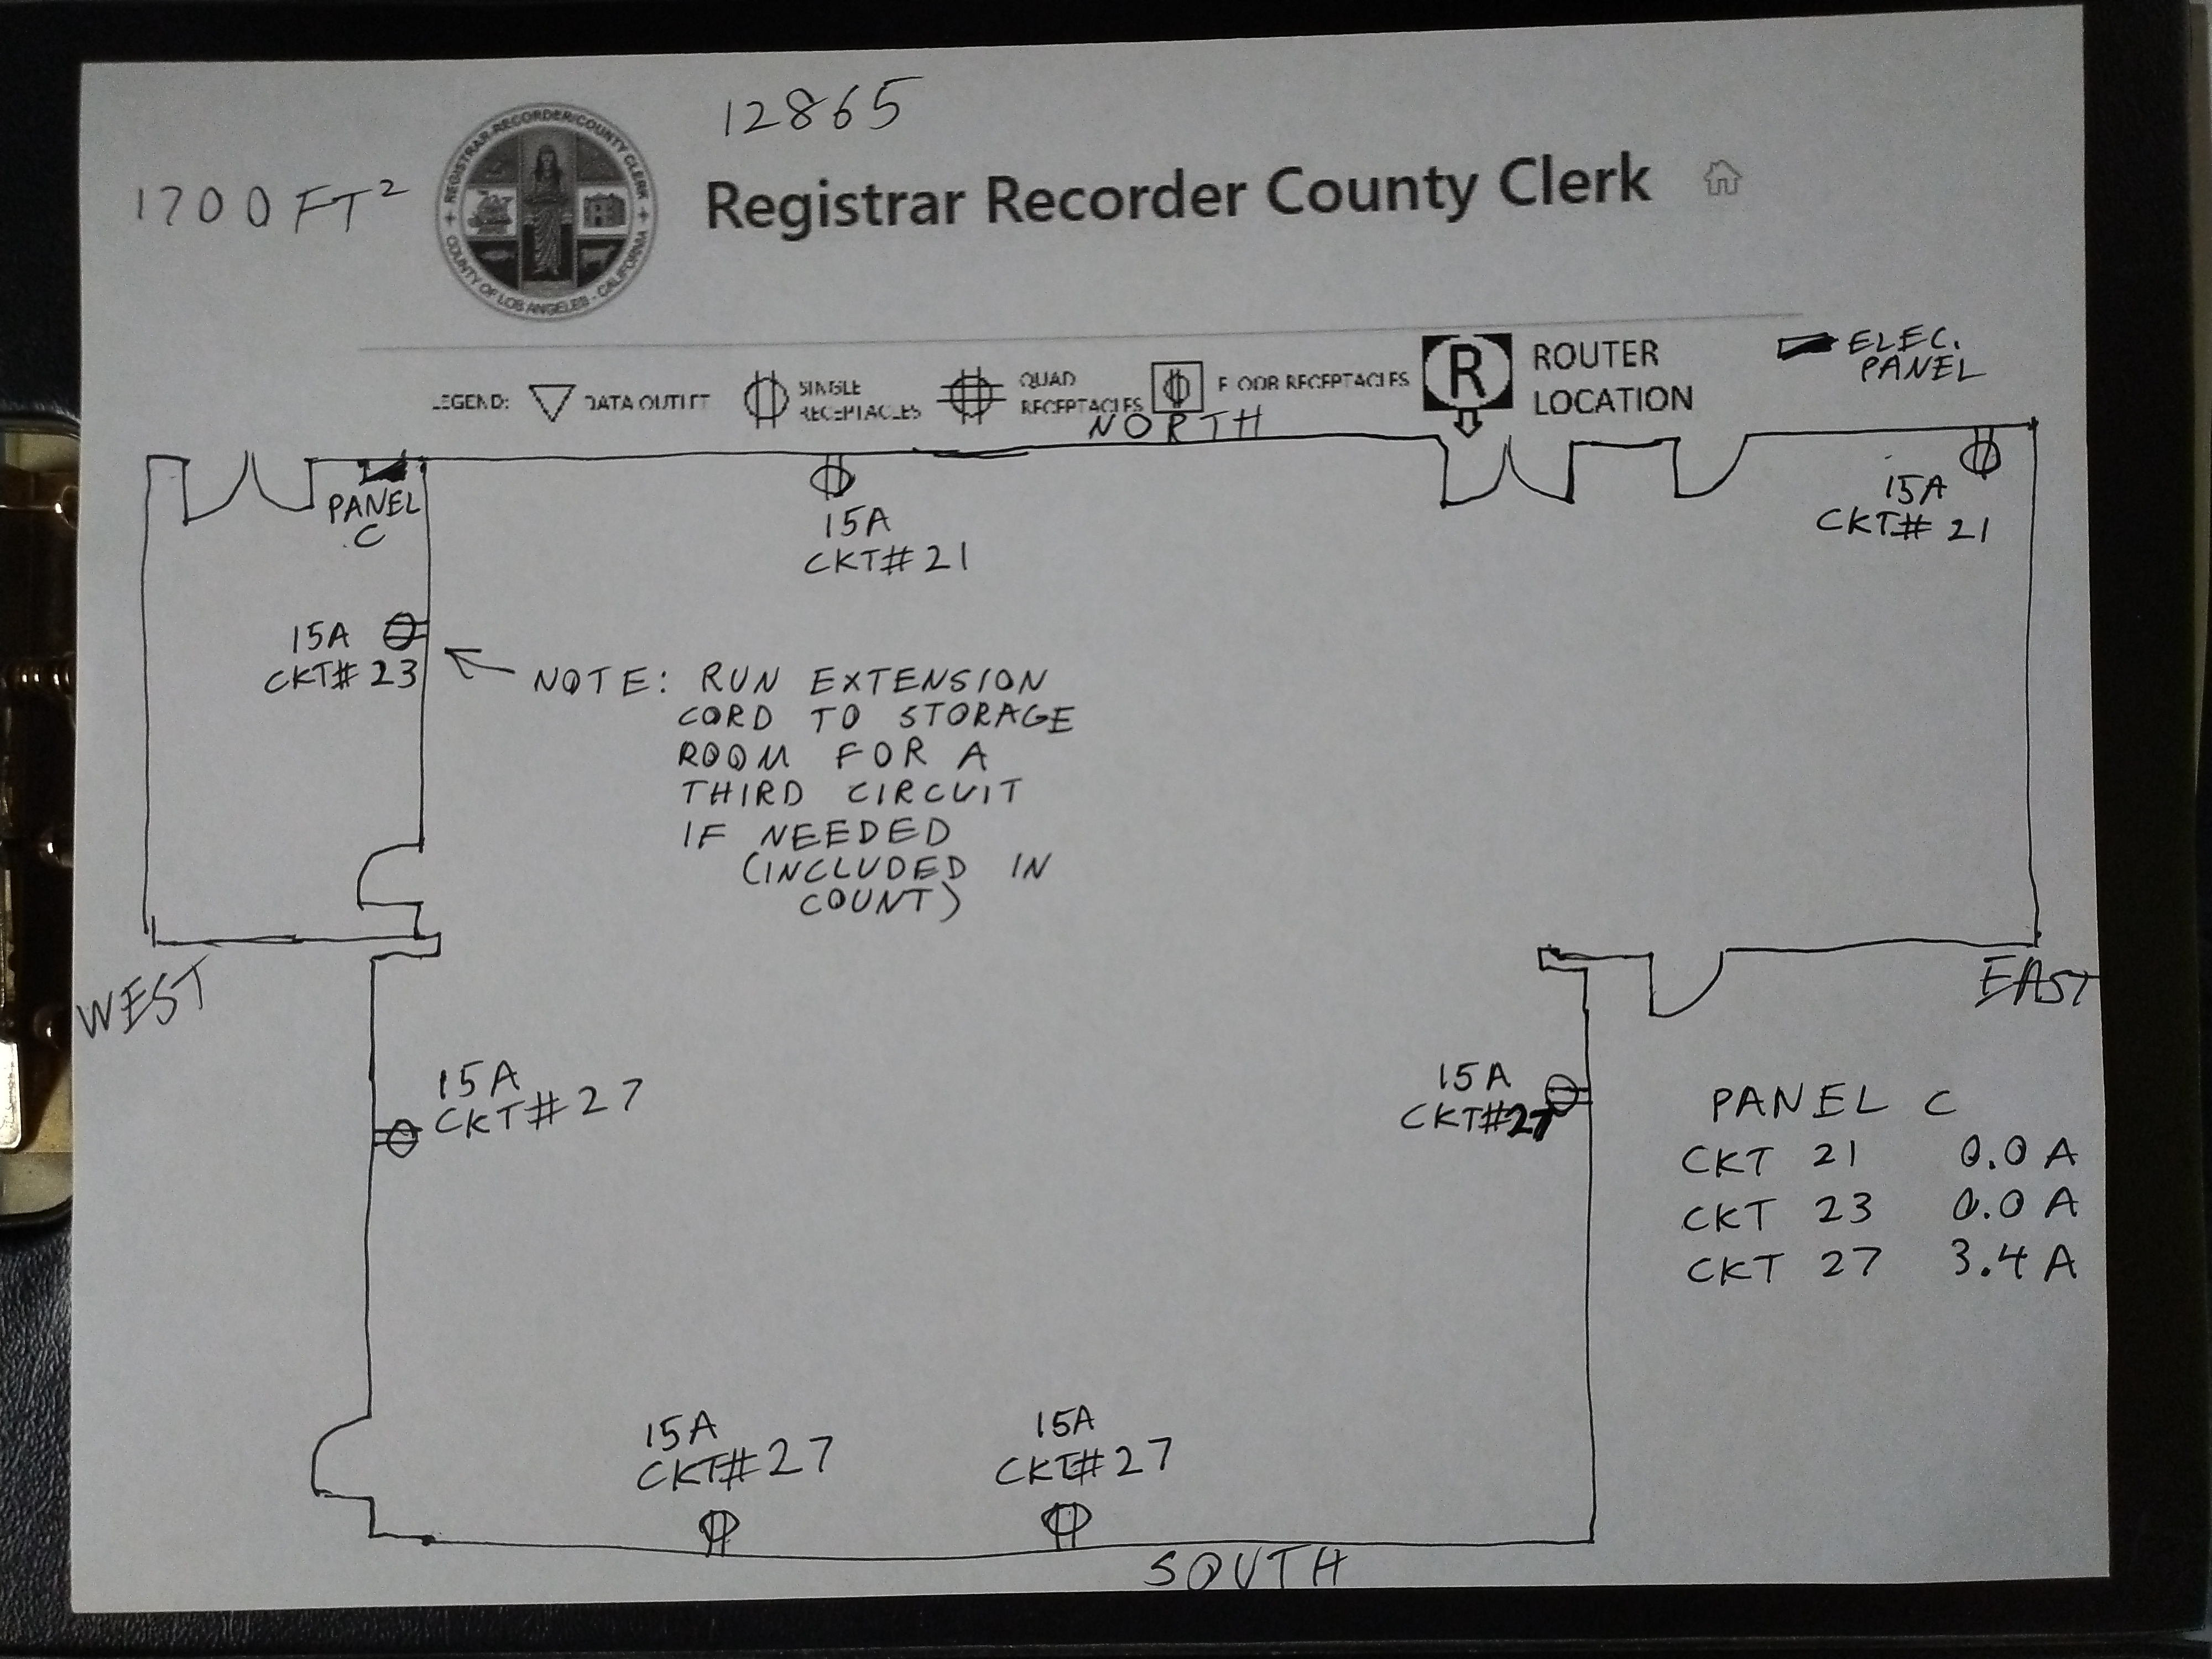 12865
1700 FT²
REGISTRAR-RECORDER/COUNTY CLERK
COUNTY OF LOS ANGELES - CALIFORNIA
Registrar Recorder County Clerk
LEGEND:
DATA OUTLET
SINGLE
RECEPTACLES
QUAD
RECEPTACLES
FLOOR RECEPTACLES
R
ROUTER
LOCATION
ELEC.
PANEL
NORTH
PANEL
C
15A
CKT# 21
15A
CKT# 21
15A
CKT# 23
NOTE: RUN EXTENSION
CORD TO STORAGE
ROOM FOR A
THIRD CIRCUIT
IF NEEDED
(INCLUDED IN
COUNT)
WEST
EAST
15A
CKT# 27
15A
CKT#27
PANEL C
CKT 21 0.0 A
CKT 23 0.0 A
CKT 27 3.4 A
15A
CKT# 27
15A
CKT# 27
SOUTH